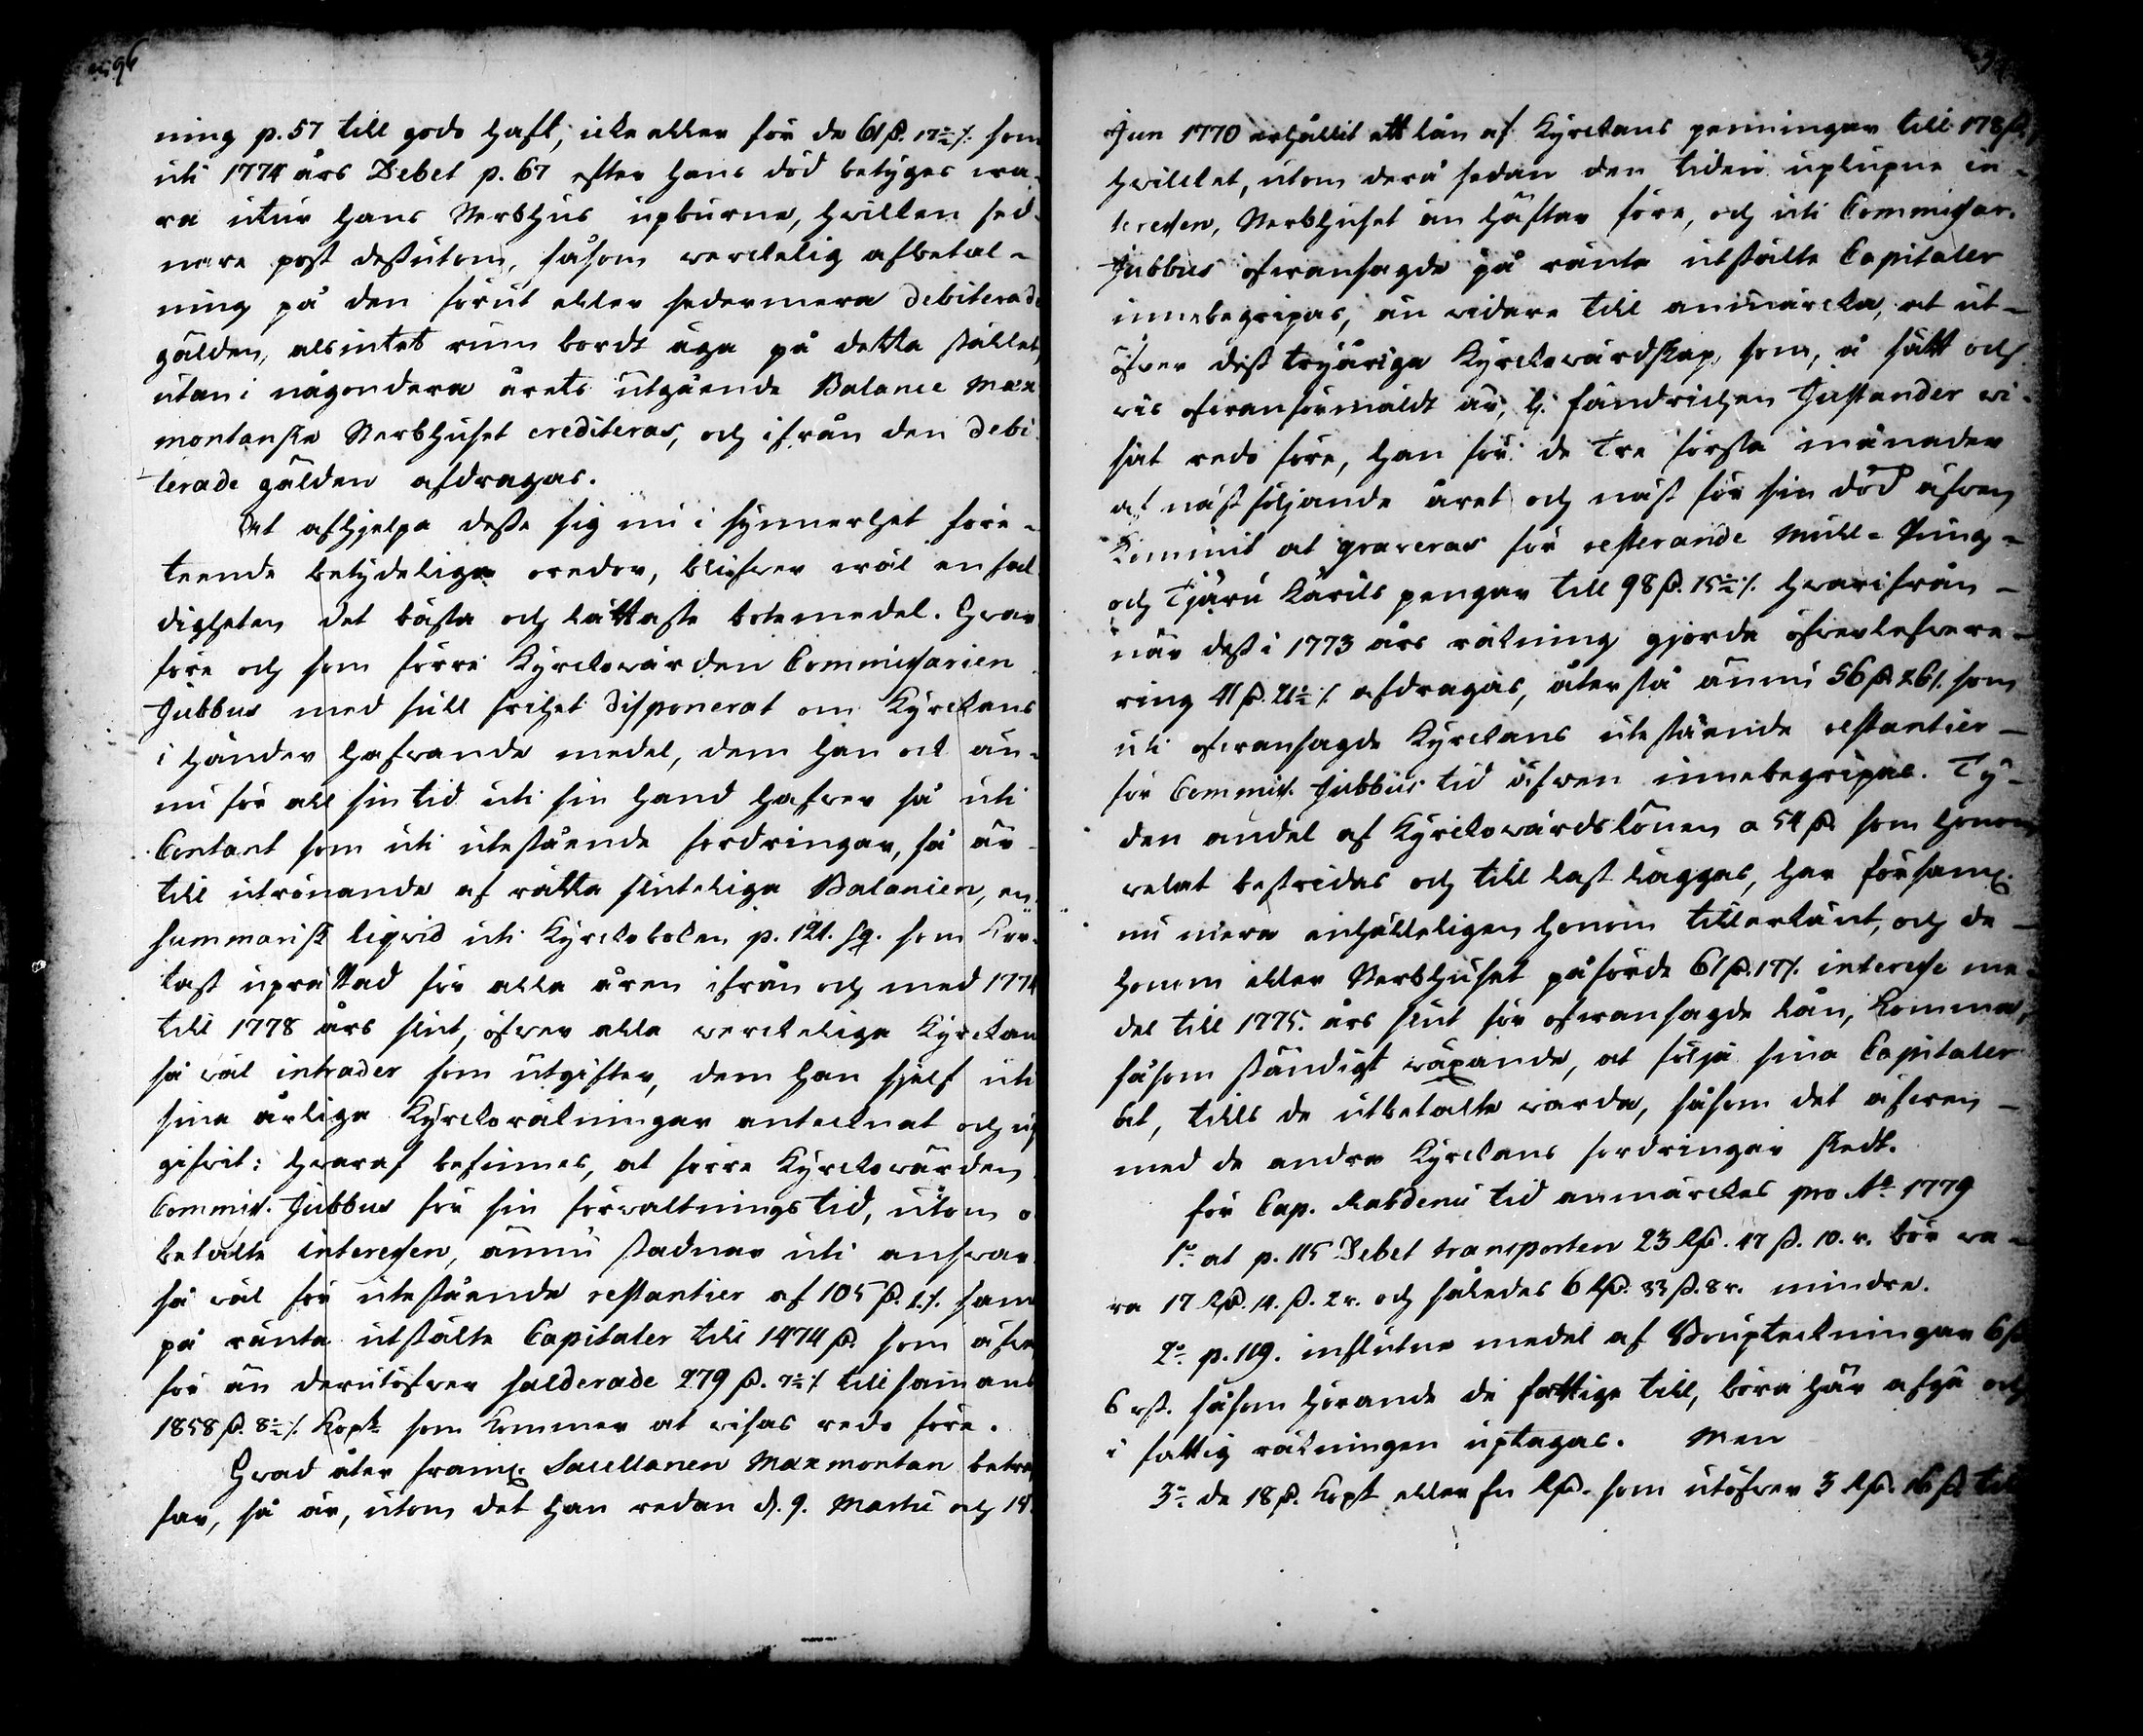 ning p. 57 till godo haft, icke eller för de 61 ß. 17½ /. som
uti 1774 års Debet p. 67 efter hans död betyges wa-
ra utur hans Sterbhus upburne, hwilken sed-
nare post dessutom, såsom werckelig afbetal-
ning på den förut eller sedermera debiterade
gälden, alsintet rum bordt äga på detta stället,
utan i någondera årets utgående Balance Max
montanska Sterbhuset crediteras, och ifrån den debi
terade gälden afdragas.
At afhjelpa desse sig nu i synnerhet före-
teende betydeliga oredor, blifwer wäl enfal
digheten det bästa och lättaste botemedel. Hwar
före och som förre Kyrckowärden Commissarien
Jubbus med full frihet disponerat om Kyrckans
i händer hafwande medel, dem han ock än-
nu för all sin tid uti sin hand hafwer så uti
Contant som uti utestående fordringar, så är
till utrönande af rätta sluteliga Balancen, en
summarisk liqvid uti Kyrckoboken p. 121. sq. som kor-
tast uprättad för alla åren ifrån och med 1774
till 1778 års slut, öfwer alla werckeliga Kyrckan
så wäl intrader som utgifter, dem han sjelf uti
sina årliga Kyrckoräkningar antecknat och up
gifwit: hwaraf befinnes, at förre Kyrckowärden
Commiss. Jubbus för sin förwaltningstid, utom o
betalte interessen, ännu stadnar uti answar
så wäl för utestående restantier af 105 ß. 1 /. som
på ränta utstälte Capitaler till 1474 ß. som äfwe
för än derutöfwer salderade 279 ß. 7½ /. till samans
1858 ß. 8½ /. Kopt som kommer at wisas redo före.
Hwad åter framl. Sacellanen Maxmontan beträf
far, så är, utom det han redan d. 9. Martii och 14
Jun 1770 erhållit ett lån af Kyrckans penningar till 178 ß,
hwilcket, utom derå sedan den tiden uplupne in-
teressen, Sterbhuset än häftar före, och uti Commissar.
Jubbus ofwansagde på ränta utstälte Capitaler
innebegripas, än widare till anmärcka, at ut-
öfwer dess treåriga Kyrckowärdskap, som, å sätt och
wis ofwanförmäldt är, H. Fändrichen Justander wi-
sat redo före, han för de tre första månader
af nästföljande året och näst för sin död äfwen
kommit at graveras för resterande Mull- Pung-
och Tjäru Kärils pengar till 98 ß. 15½ /. hwarifrån
när dess i 1773 års räkning gjorde öfwerlefwere-
ring 41 ß. 21½ /. afdragas, återstå ännu 56 ß. 26 /. som
uti ofwansagde Kyrckans utestående restantier
för Commiss. Jubbus tid äfwen innebegripas. Ty-
den andel af Kyrckowärdslönen a 54 ß. som honom
welat bestridas och till last läggas, har församl.
nu mera enhälleligen honom tillerkänt, och de
honom eller Sterbhuset påförde 61 ß. 17 /. interesse me-
del till 1775. års slut för ofwansagde lån, komma,
såsom ständigt wäxande, at följa sina Capitaler
åt, tills de utbetalte warda, såsom det äfwen
med de andra Kyrckans fordringar skedt.
För Cap. Rabdenii tid anmärckes pro Ao. 1779
1o at p. 115 Debet transporten 23 Rß. 47 ß. 10. r. bör wa-
ra 17 Rß. 14. ß. 2 r. och således 6 Rß. 33 ß. 8 r. mindre.
2o p. 119. influtne medel af Bouptekningar 6 ß
6 rß. såsom hörande de fattige till, böra här afgå och
i fattig räkningen uptagas. Men
3o de 18 ß. Kopt eller en Rß. som utöfwer 3 Rß. 16 ß. till